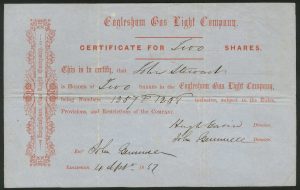 Eaglesham Gas Light Company.
CERTIFICATE FOR Two SHARES.
This is to certify, that John Stewart
is Holder of Two Shares in the Eaglesham Gas Light Company,
being Numbers inclusive, subject to the Rules,
Provisions, and Restrictions of the Company.
Hugh Director.
John Gemmell Director.
John Gemmell
Eaglesham, 4 Apr 1857